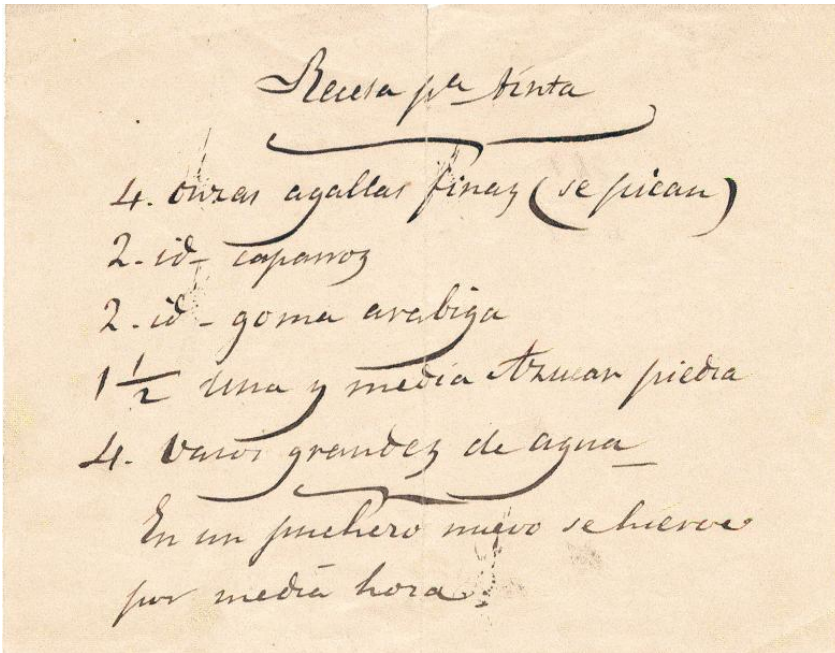 Receta pa tinta
4. onzas agallas finaz (se pican)
2. id- caparroz
2. id - goma arabiga
1 1/2 una y media Azucar piedra
4. vasos grandez de agua_
En un puchero nuevo se hierve
por media hora.